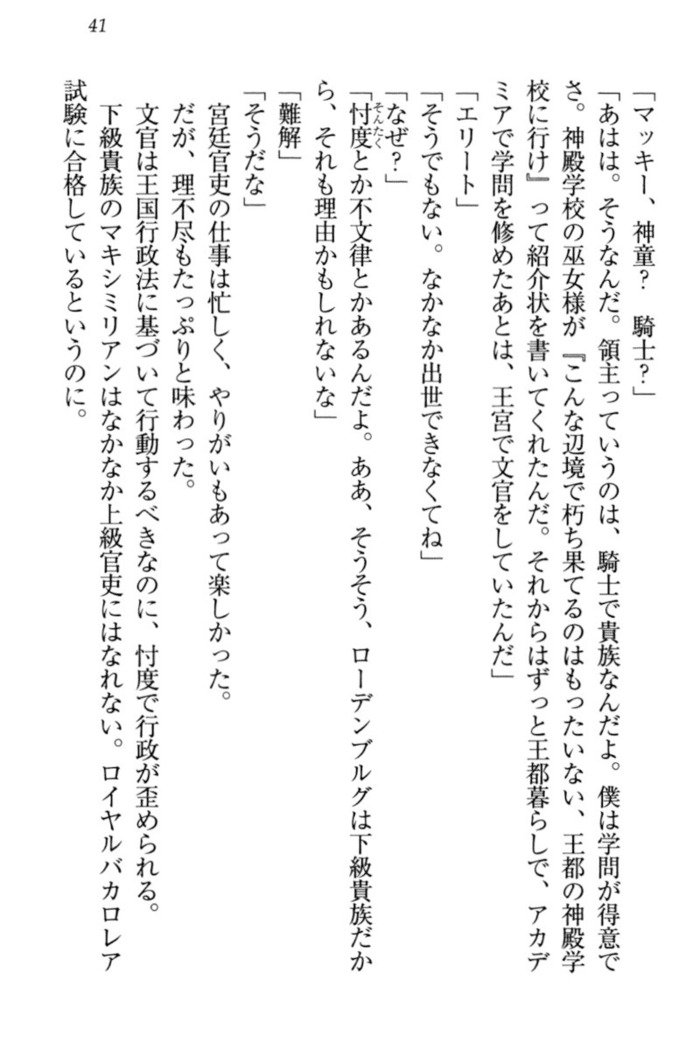 41
「マッキー、神童？　騎士？」
「あはは。そうなんだ。領主っていうのは、騎士で貴族なんだよ。僕は学問が得意で
さ。神殿学校の巫女様が『こんな辺境で朽ち果てるのはもったいない、王都の神殿学
校に行け』って紹介状を書いてくれたんだ。それからはずっと王都暮らしで、アカデ
ミアで学問を修めたあとは、王宮で文官をしていたんだ」
「エリート」
「そうでもない。なかなか出世できなくてね」
「なぜ？」
「忖度とか不文律とかあるんだよ。ああ、そうそう、ローデンブルグは下級貴族だか
そんたく
ら、それも理由かもしれないな」
「難解」
「そうだな」
宮廷官吏の仕事は忙しく、やりがいもあって楽しかった。
だが、理不尽もたっぷりと味わった。
文官は王国行政法に基づいて行動するべきなのに、忖度で行政が歪められる。
下級貴族のマキシミリアンはなかなか上級官吏にはなれない。ロイヤルバカロレア
試験に合格しているというのに。